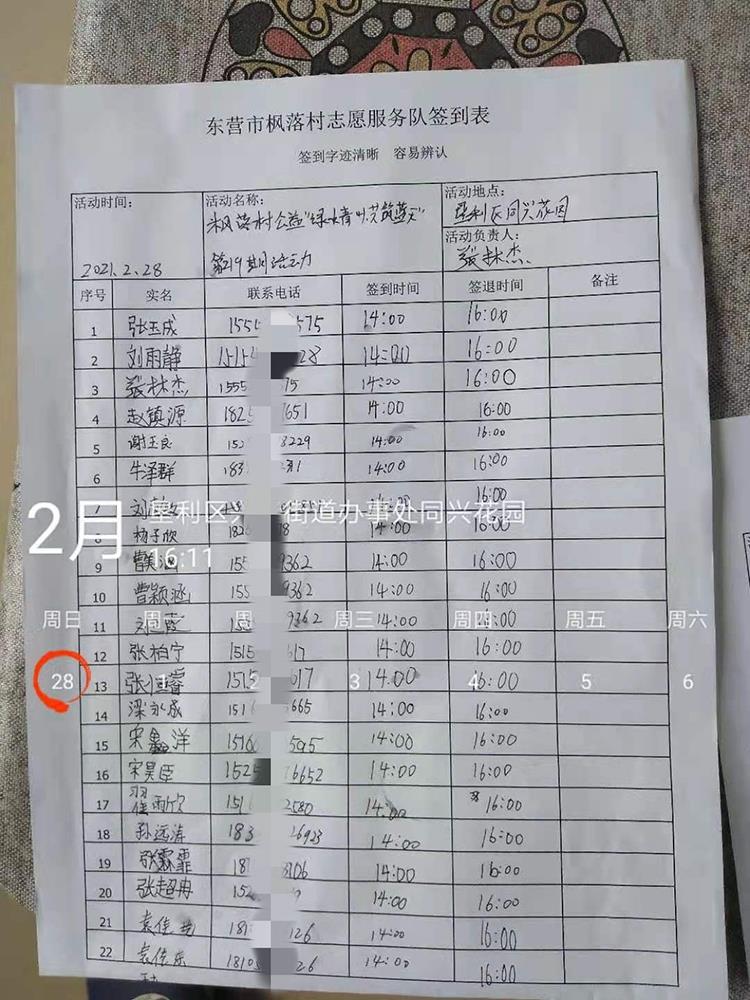 东营市枫落村志愿服务队签到表
签到字迹清晰 容易辨认
活动时间: 2021.2.28
活动名称: 枫落村公益"绿水青山共筑蓝天"
第19期活动
活动地点: 垦利区同兴花园
活动负责人: 张林杰
序号 实名 联系电话 签到时间 签退时间 备注
1 张玉成 155 575 14:00 16:00
2 刘雨静 1515 28 14:00 16:00
3 张林杰 1555 75 14:00 16:00
4 赵镇源 182 651 14:00 16:00
5 谢玉良 152 8229 14:00 16:00
6 牛泽群 183 14:00 16:00
7 刘 16:00
8 杨子欣 182 8 14:00 16:00
9 曹 涵 155 9362 14:00 16:00
10 曹颖涵 155 9362 14:00 16:00
11 刘 霞 9362 14:00 16:00
12 张柏宁 1515 617 14:00 16:00
13 张恒睿 1515 617 14:00 16:00
14 梁永成 151 665 14:00 16:00
15 宋鑫洋 1516 595 14:00 16:00
16 宋昊臣 1525 6652 14:00 16:00
17 翟雨欣 151 2580 14:00 16:00
18 孙远涛 183 26923 14:00 16:00
19 张霖霏 181 8106 14:00 16:00
20 张超冉 152 14:00 16:00
21 袁佳 181 126 14:00 16:00
22 袁佳乐 1810 26 14:00 16:00
2月
垦利区 街道办事处同兴花园
16:11
周日 周一 周二 周三 周四 周五 周六
28 1 2 3 4 5 6